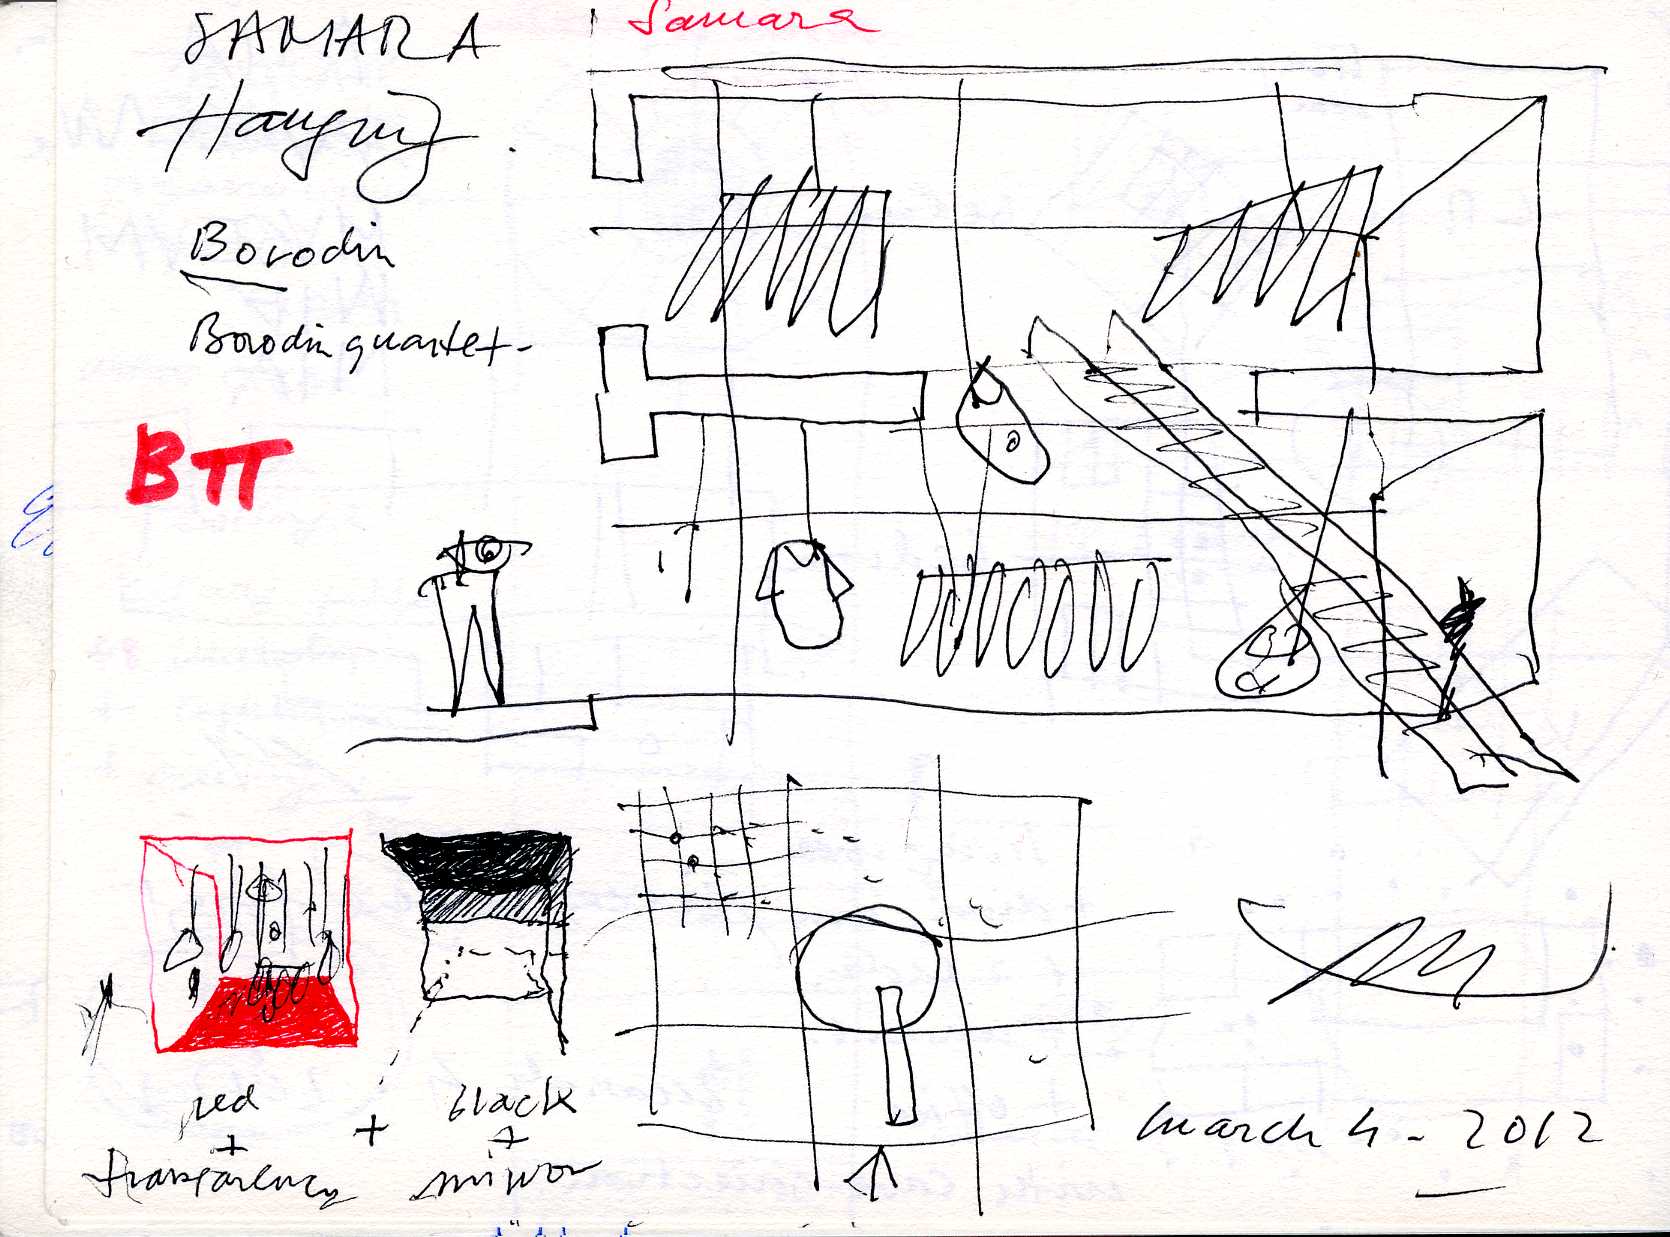 SAMARA
Samara
Hanging.
Borodin
Borodin quartet-
Bπ
red
+
transparency
+
black
+
mirror
march 4 - 2012